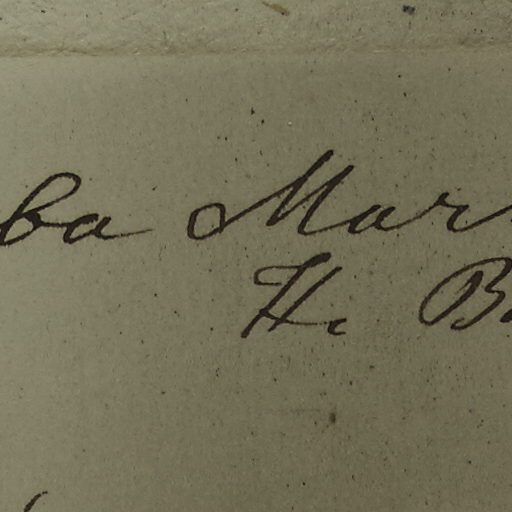 ba Mar
H. B